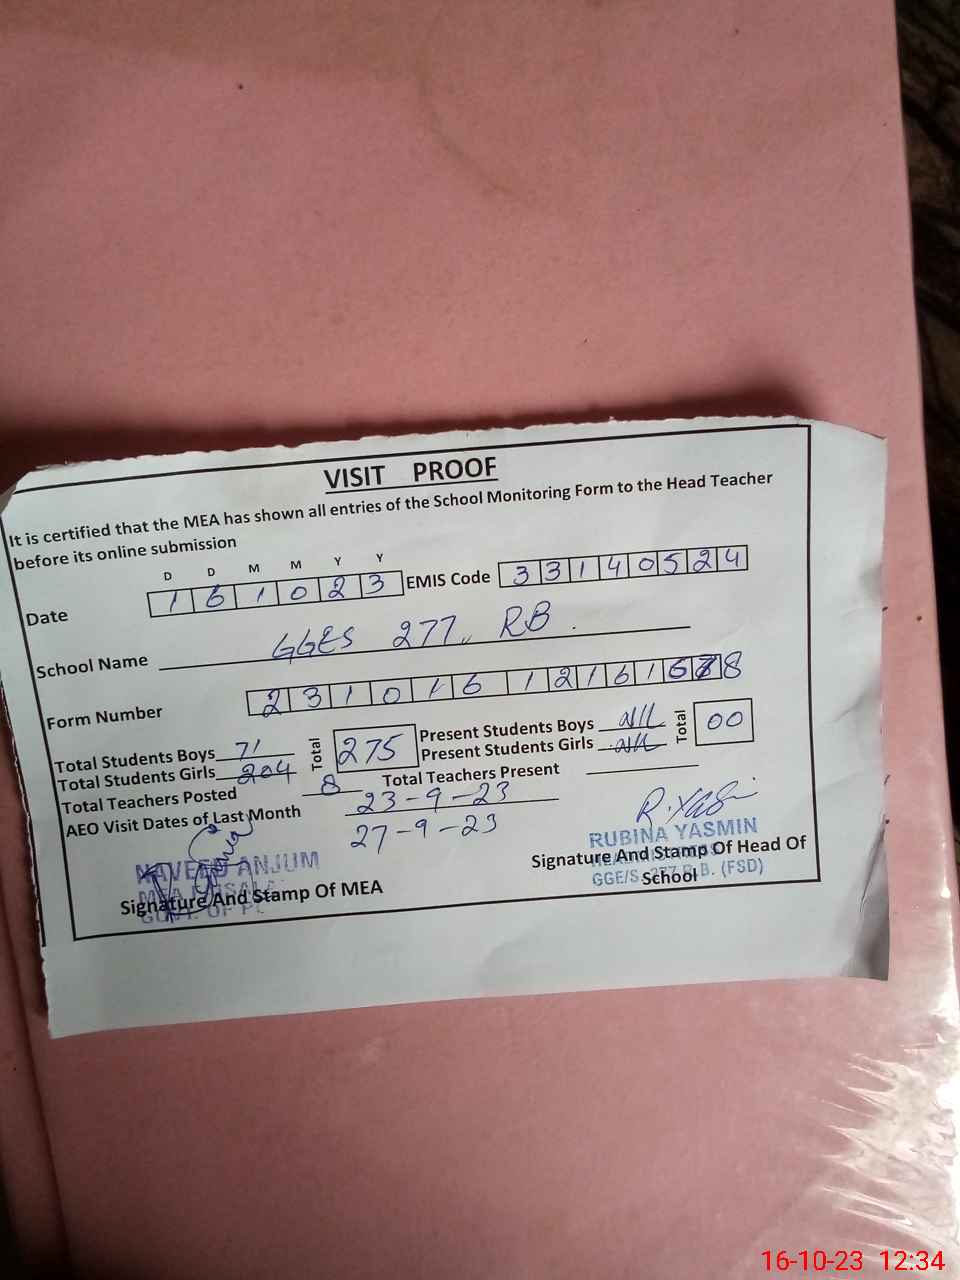 VISIT PROOF
It is certified that the MEA has shown all entries of the School Monitoring Form to the Head Teacher
before its online submission
D D M M Y Y
Date 1 6 1 0 2 3 EMIS Code 3 3 1 4 0 5 2 4
School Name GGES 277 RB
Form Number 2 3 1 0 1 6 1 2 1 6 1 6 8
Total Students Boys 71 Total 275 Present Students Boys Nil Total 00
Total Students Girls 204 Present Students Girls Nil
Total Teachers Posted 8 Total Teachers Present
AEO Visit Dates of Last Month 23-9-23
27-9-23
R.Yas
NAVEED ANJUM
MEA
GOVT. OF
Signature And Stamp Of MEA
RUBINA YASMIN
Signature And Stamp Of Head Of
School
GGE/S. 277 R.B. (FSD)
16-10-23 12:34